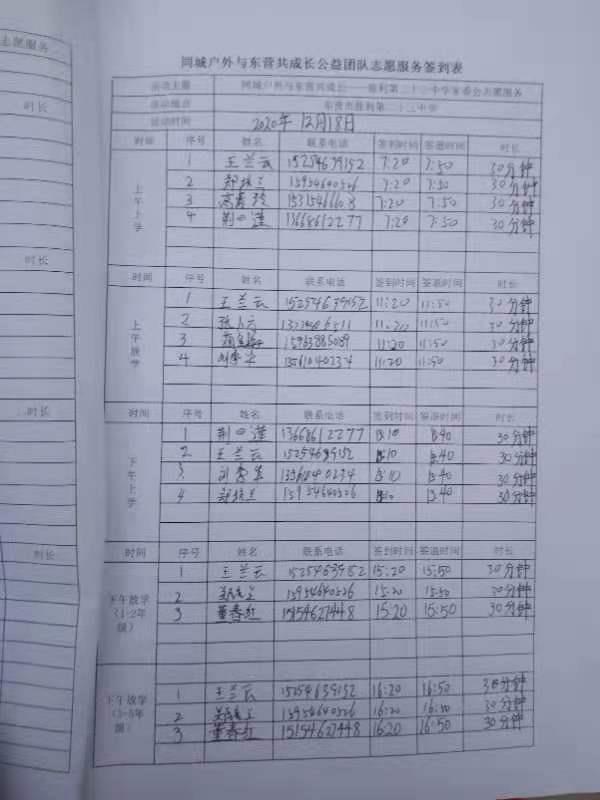 志愿服务
时长
时长
时长
时长
同城户外与东营共成长公益团队志愿服务签到表
活动主题 同城户外与东营共成长——胜利第二十三中学家委会志愿服务
活动地点 东营市胜利第二十三中学
活动时间 2020年12月18日
时间 序号 姓名 联系电话 签到时间 签退时间 时长
上午上学
1 王兰云 15254639152 7:20 7:50 30分钟
2 15954640526 7:20 7:50 30分钟
3 7:20 7:50 30分钟
4 13668612277 7:20 7:50 30分钟
时间 序号 姓名 联系电话 签到时间 签退时间 时长
上午放学
1 王兰云 15254639152 11:20 11:50 30分钟
2 11:20 11:50 30分钟
3 15963885089 11:20 11:50 30分钟
4 13561040234 11:20 11:50 30分钟
时间 序号 姓名 联系电话 签到时间 签退时间 时长
下午上学
1 13668612277 13:10 13:40 30分钟
2 王兰云 15254639152 13:10 13:40 30分钟
3 13:10 13:40 30分钟
4 15954640526 13:10 13:40 30分钟
时间 序号 姓名 联系电话 签到时间 签退时间 时长
下午放学(1-2年级)
1 王兰云 15254639152 15:20 15:50 30分钟
2 15954640526 15:20 15:50 30分钟
3 董春红 15154627448 15:20 15:50 30分钟
下午放学(3-5年级)
1 王兰云 15254639152 16:20 16:50 30分钟
2 15954640526 16:20 16:50 30分钟
3 董春红 15154627448 16:20 16:50 30分钟